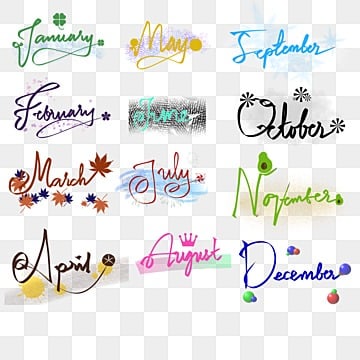 January
May
September
February
June
October
March
July
November
April
August
December